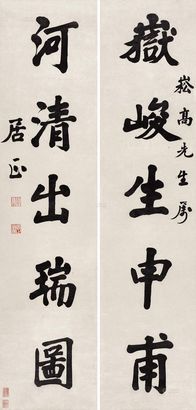 嶽峻生申甫
崧高先生屬
河清出瑞圖
居正